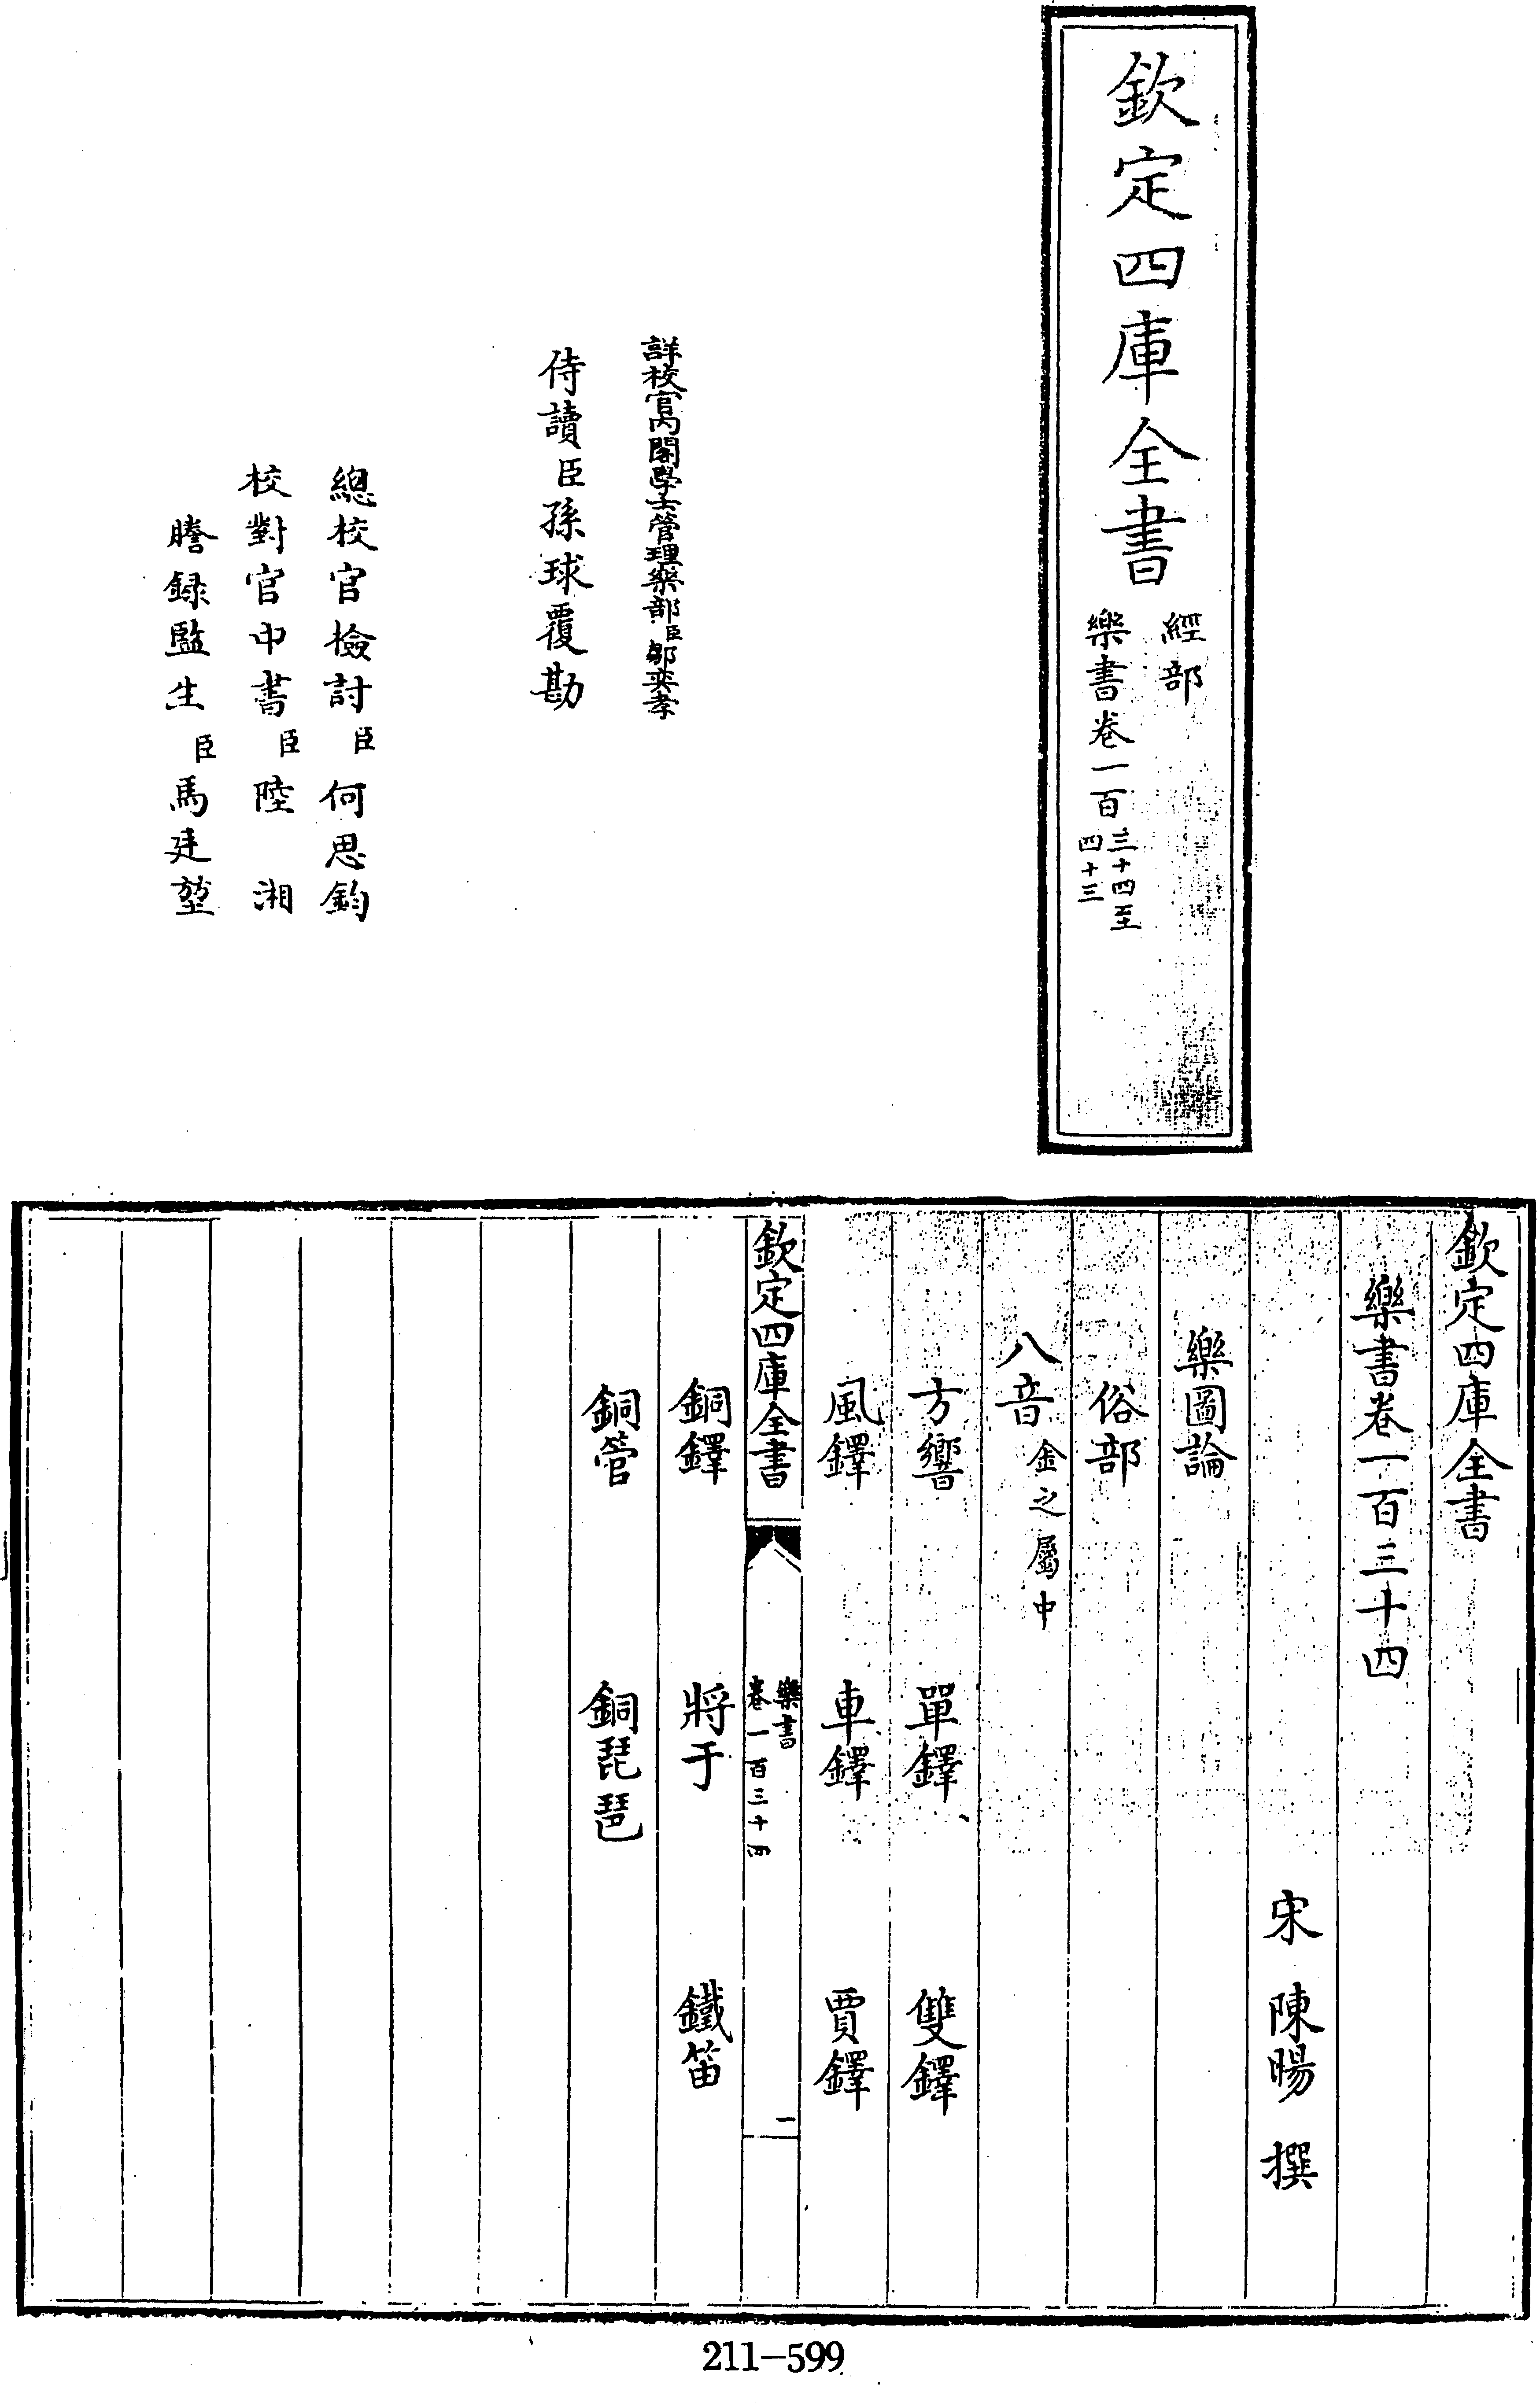 欽定四庫全書
經部
樂書卷一百三十四至四十三
詳校官內閣學士管理樂部臣鄒奕孝
侍讀臣孫球覆勘
總校官檢討臣何思鈞
校對官中書臣陸湘
謄録監生臣馬廷堃
欽定四庫全書
樂書卷一百三十四
宋 陳暘 撰
樂圖論
俗部
八音 金之屬中
方響 單鐸 雙鐸
風鐸 車鐸 賈鐸
欽定四庫全書
樂書
卷一百三十四
一
銅鐸 將于 鐵笛
銅管 銅琵琶
211-599